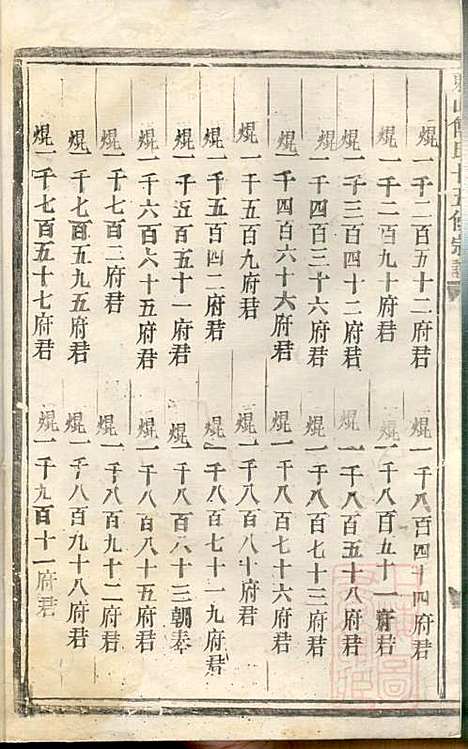 山氏十五修宗譜
焜一千二百五十二府君
焜一千二百九十府君
焜一千三百四十二府君
焜一千四百三十六府君
焜一千四百六十六府君
焜一千五百九府君
焜一千五百四二府君
焜一千五百五十一府君
焜一千六百六十五府君
焜一千七百二府君
焜一千七百五九五府君
焜一千七百五十七府君
焜一千八百四十四府君
焜一千八百五十一府君
焜一千八百五十八府君
焜一千八百七十三府君
焜一千八百七十六府君
焜一千八百八十府君
焜一千八百七十一九府君
焜一千八百八十三朝奉
焜一千八百八十五府君
焜一千八百九十二府君
焜一千八百九十八府君
焜一千九百十一府君